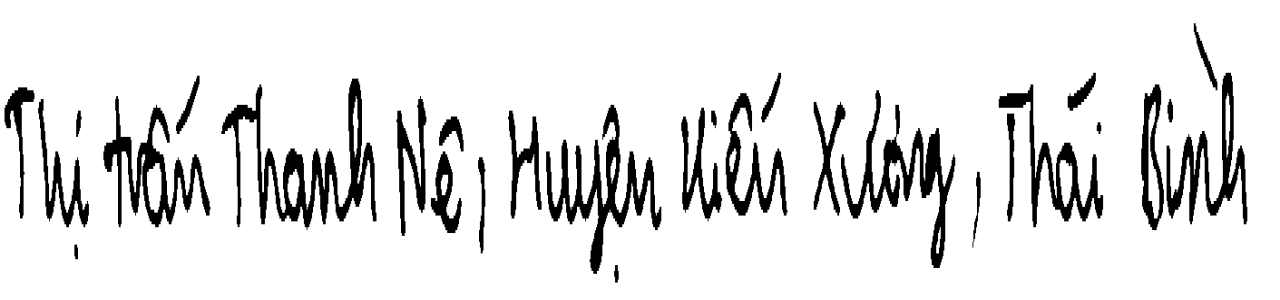 Thị trấn Thanh Nê, Huyện Kiến Xương, Thái Bình